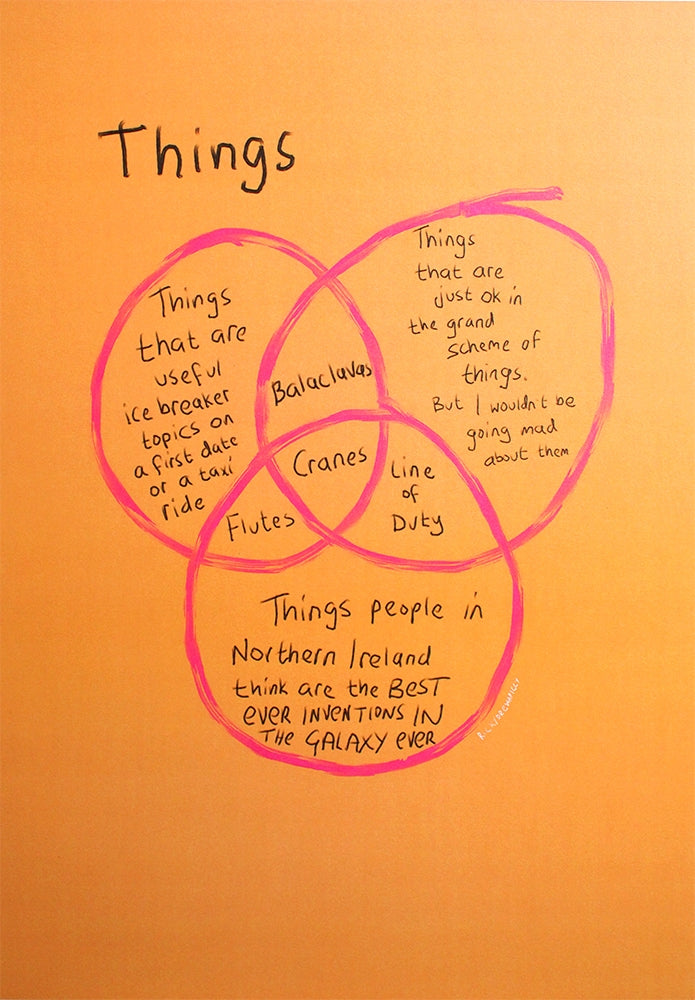 Things
Things
that are
useful
ice breaker
topics on
a first date
or a taxi
ride
Things
that are
just ok in
the grand
scheme of
things.
But I wouldn't be
going mad
about them
Balaclavas
Cranes
Flutes
Line
of
Duty
Things people in
Northern Ireland
think are the BEST
EVER INVENTIONS IN
THE GALAXY EVER